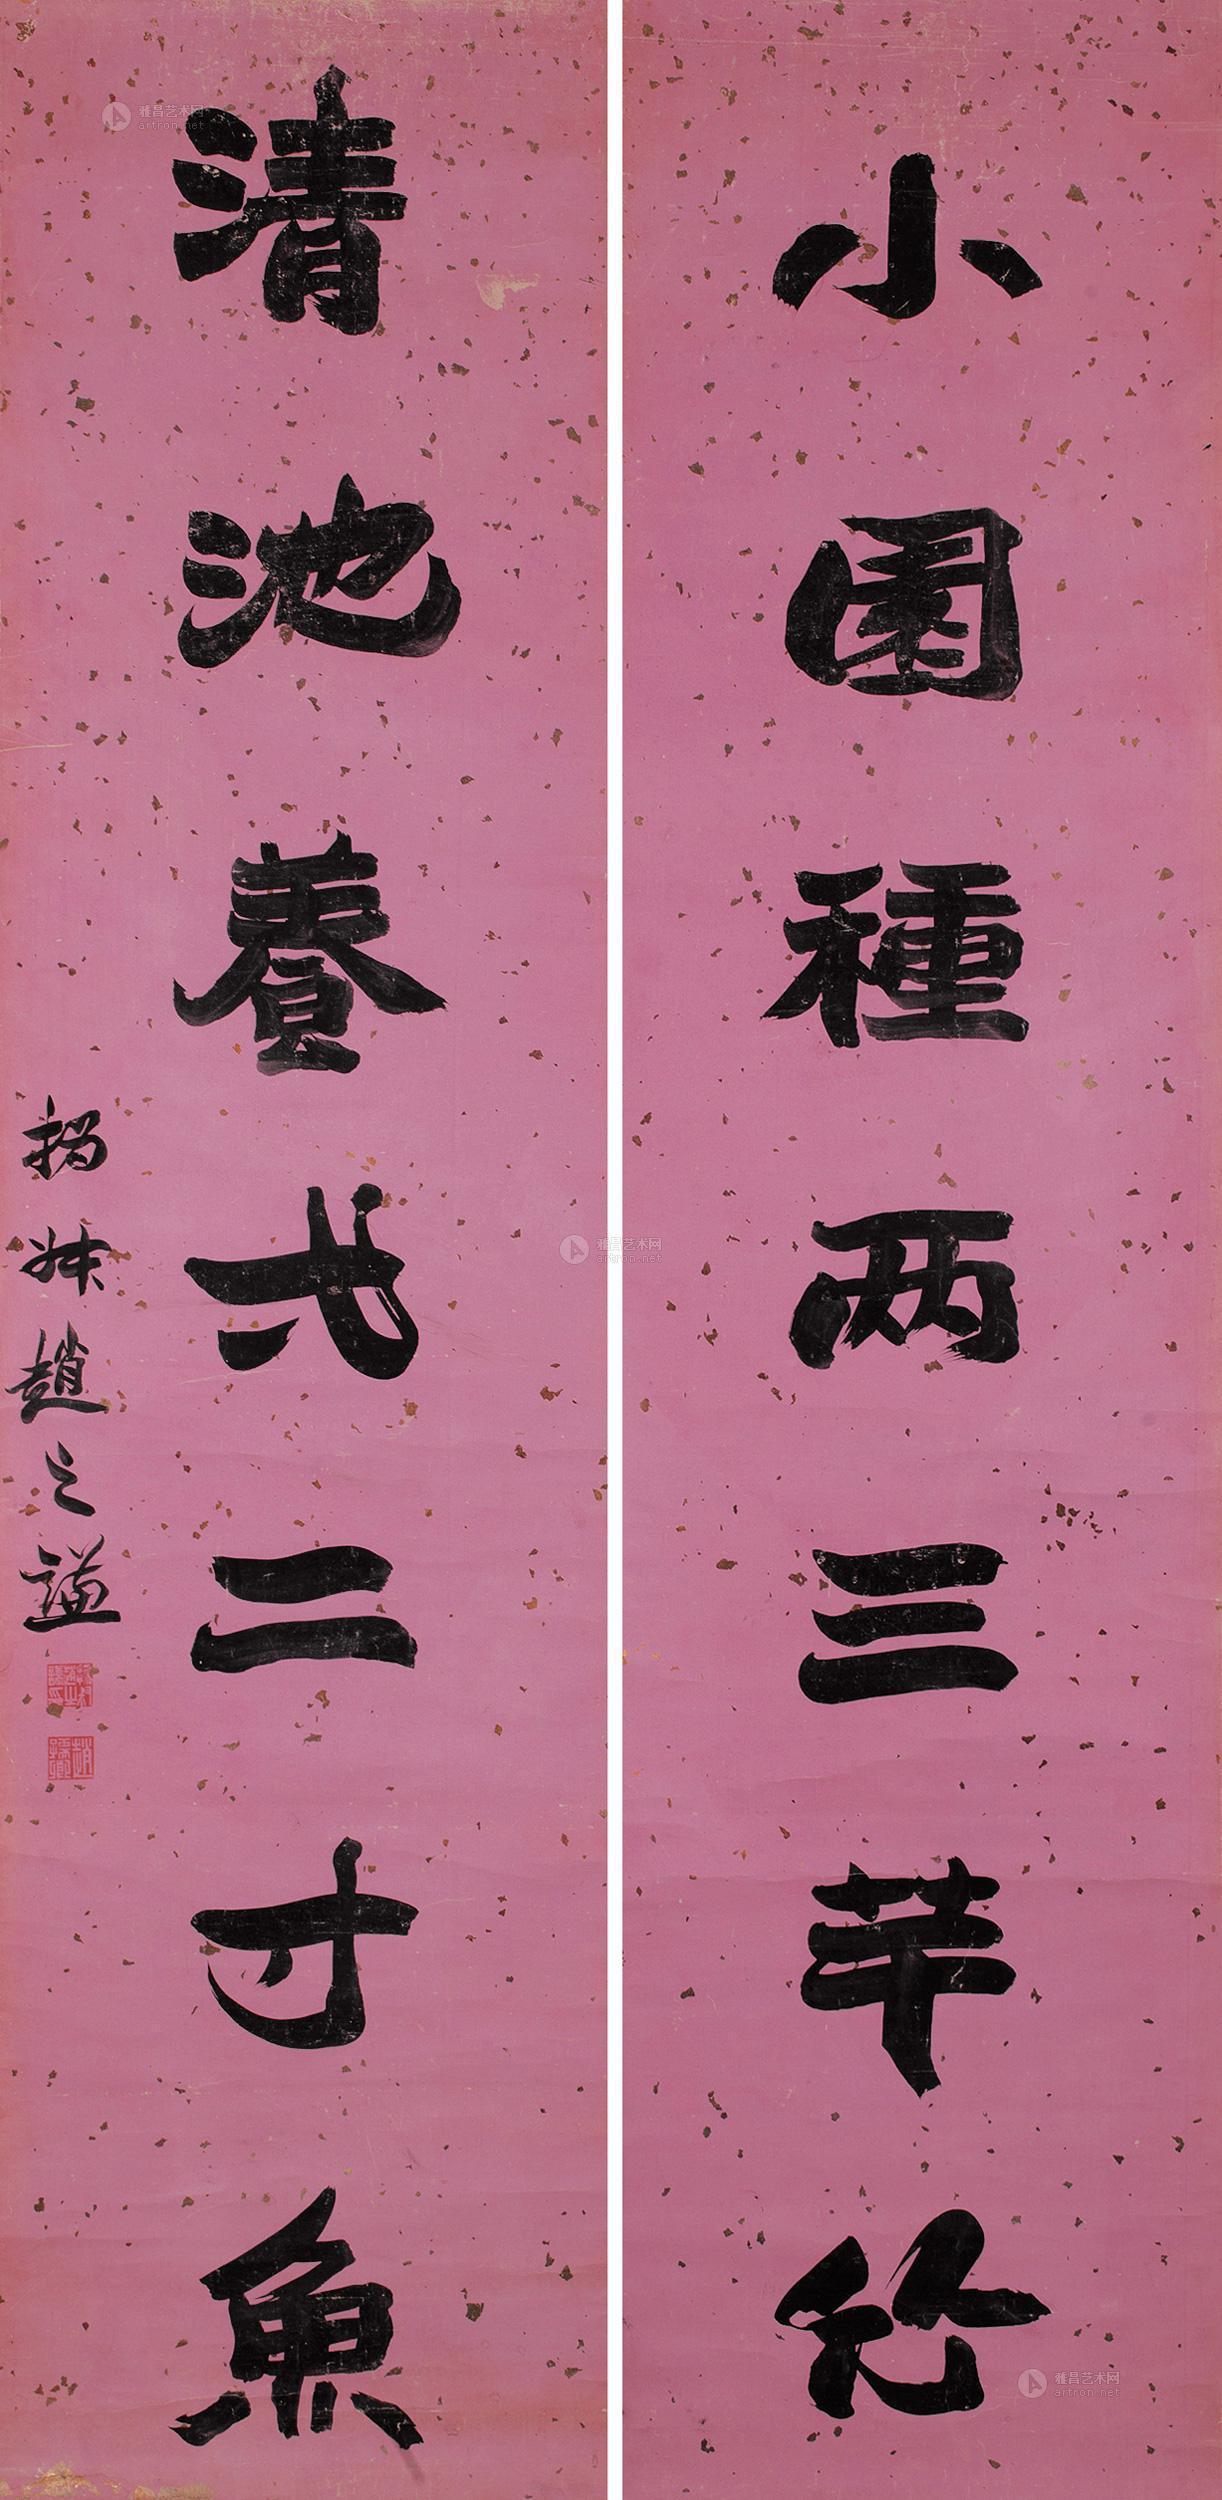 小園種两三芉竹
清池養弌二寸魚
撝叔趙之謙
雅昌艺术网
artron.net
雅昌艺术网
artron.net
雅昌艺术网
artron.net